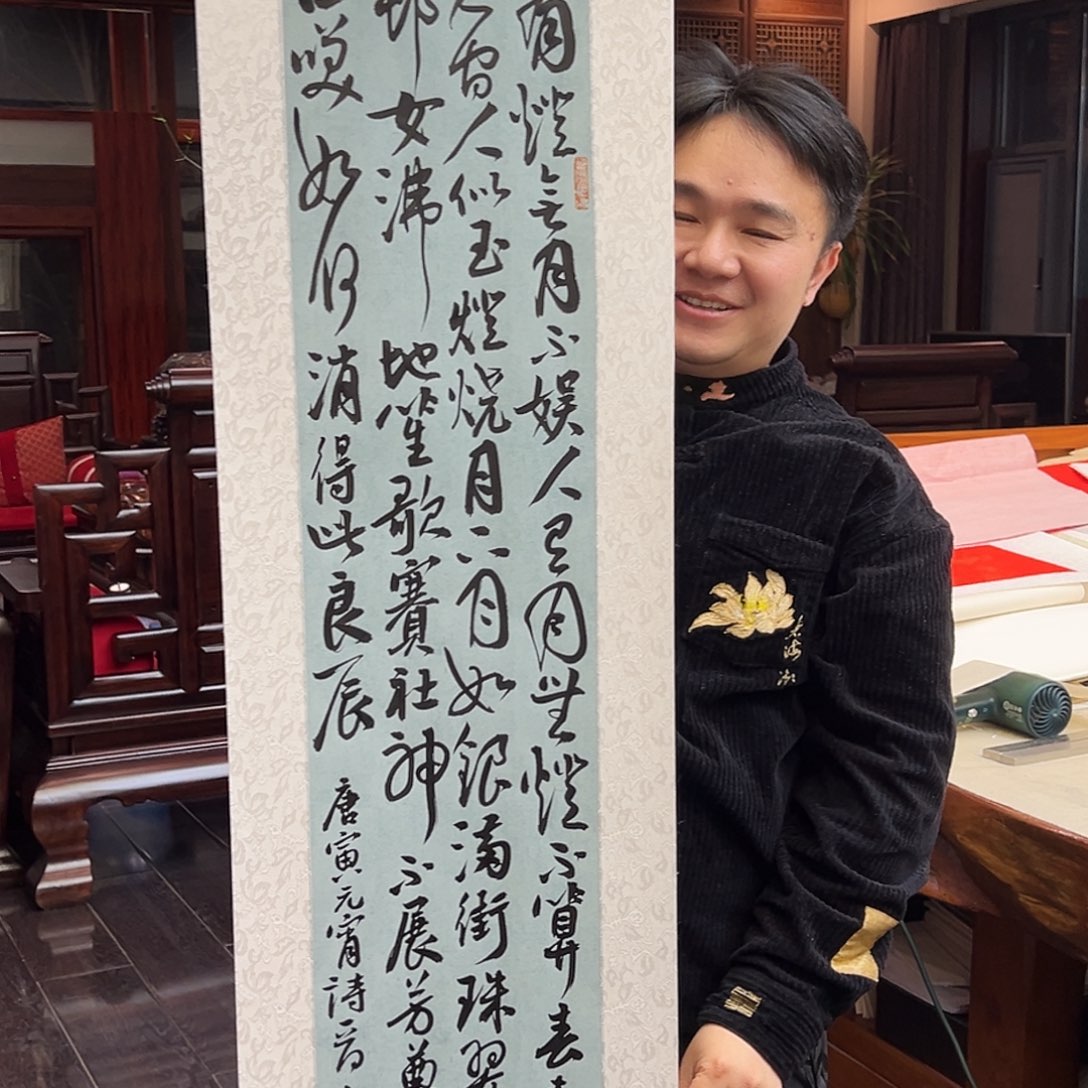 有燈無月不娛人有月無燈不算春
間人似玉燈燒月下月如銀滿街珠翠
邨女沸地笙歌賽社神不展芳尊
咲如何消得此良辰
唐寅元宵詩一首